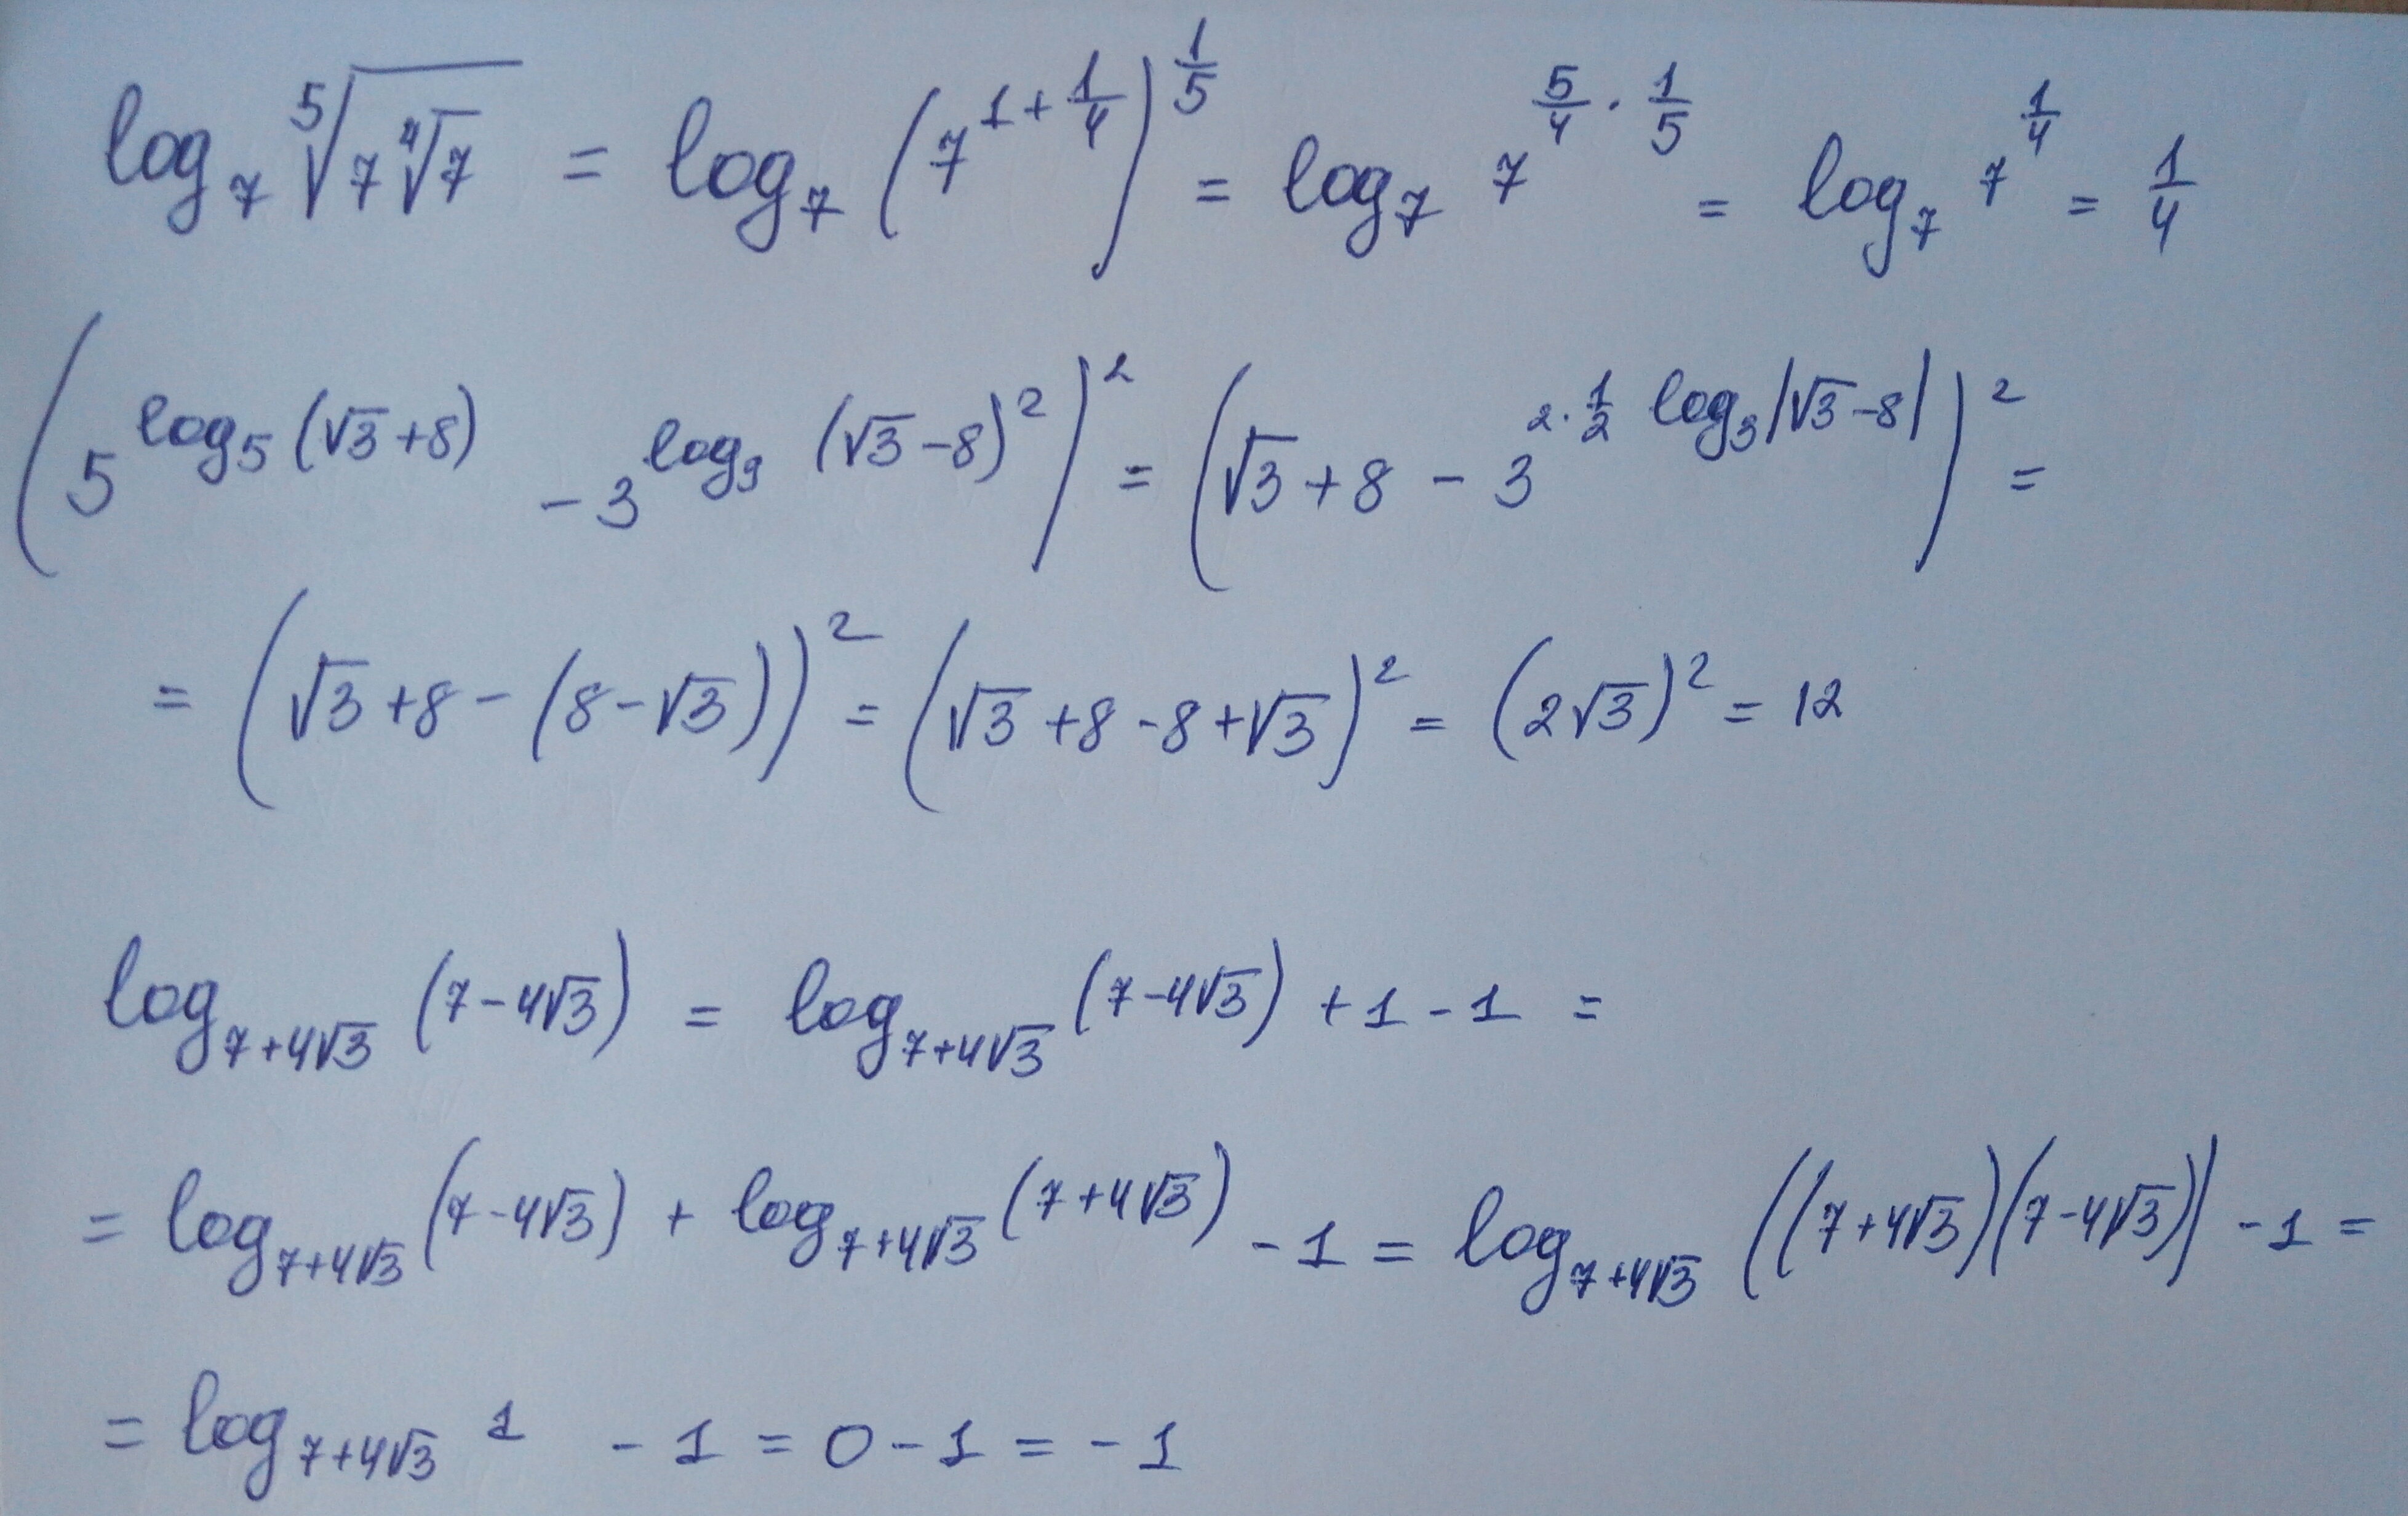 log₇ ⁵√(7 ⁴√7) = log₇ (7^(1+1/4))^(1/5) = log₇ 7^(5/4 · 1/5) = log₇ 7^(1/4) = 1/4
(5^(log₅ (√3+8)) - 3^(log₉ (√3-8)²))² = (√3+8 - 3^(2·1/2 log₃|√3-8|))² =
= (√3+8-(8-√3))² = (√3+8-8+√3)² = (2√3)² = 12
log_(7+4√3) (7-4√3) = log_(7+4√3) (7-4√3) + 1 - 1 =
= log_(7+4√3) (7-4√3) + log_(7+4√3) (7+4√3) - 1 = log_(7+4√3) ((7+4√3)(7-4√3)) - 1 =
= log_(7+4√3) 1 - 1 = 0 - 1 = -1